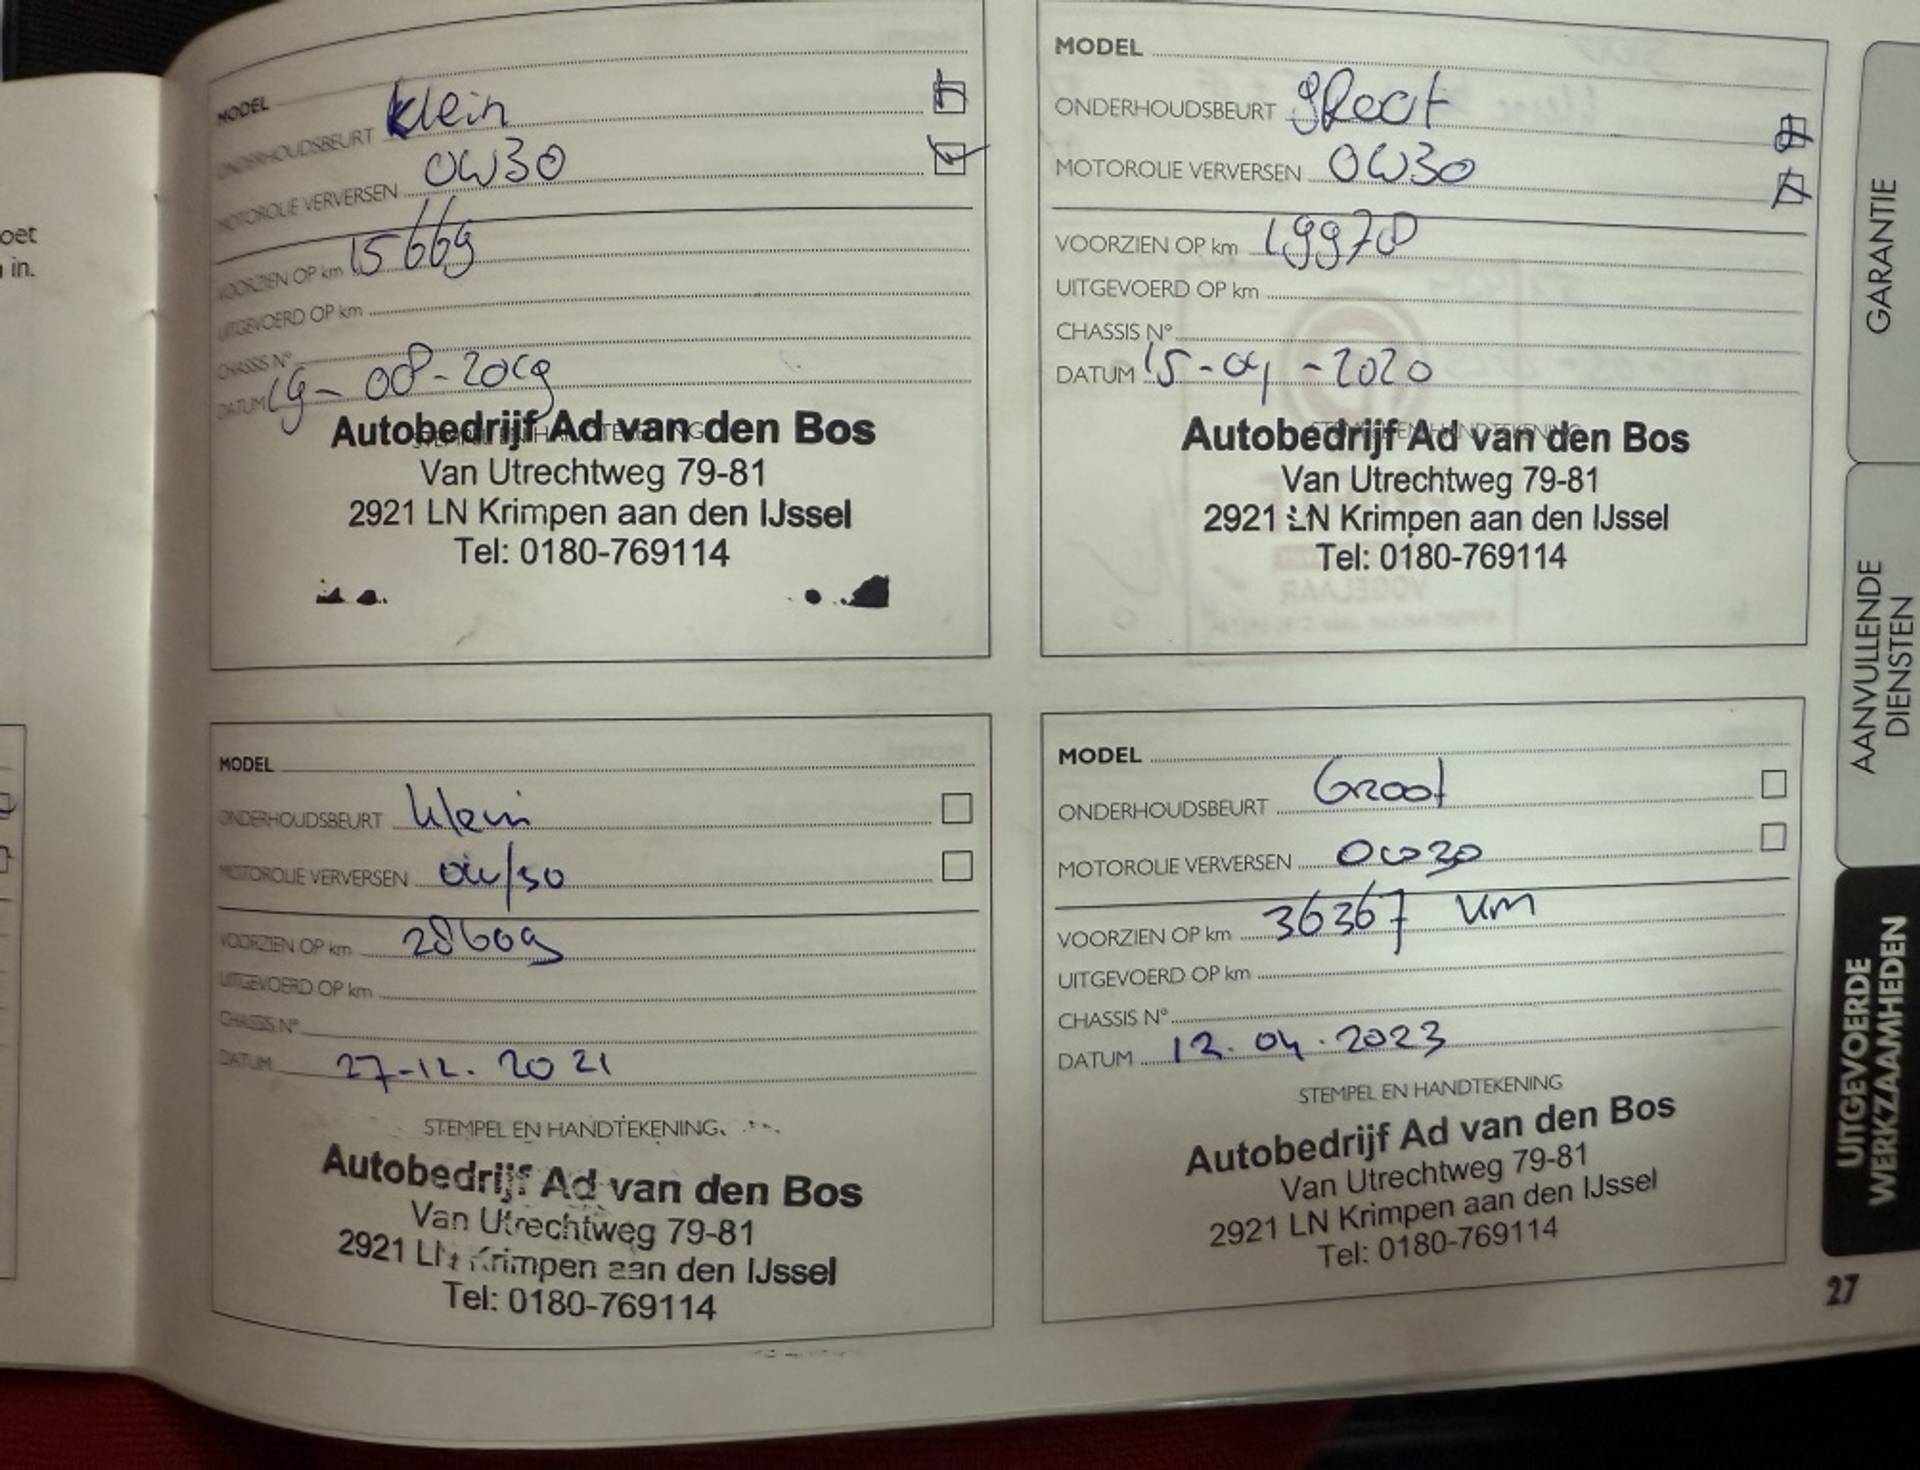 oet
in.
MODEL
ONDERHOUDSBEURT Klein
MOTOROLIE VERVERSEN 0W30
VOORZIEN OP km 15669
UITGEVOERD OP km
CHASSIS N°
DATUM 19-08-2019
STEMPEL EN HANDTEKENING
Autobedrijf Ad van den Bos
Van Utrechtweg 79-81
2921 LN Krimpen aan den IJssel
Tel: 0180-769114
MODEL
ONDERHOUDSBEURT gRoot
MOTOROLIE VERVERSEN 0W30
VOORZIEN OP km 19970
UITGEVOERD OP km
CHASSIS N°
DATUM 15-04-2020
STEMPEL EN HANDTEKENING
Autobedrijf Ad van den Bos
Van Utrechtweg 79-81
2921 LN Krimpen aan den IJssel
Tel: 0180-769114
MODEL
ONDERHOUDSBEURT klein
MOTOROLIE VERVERSEN 0W/30
VOORZIEN OP km 28609
UITGEVOERD OP km
CHASSIS N°
DATUM 27-12.2021
STEMPEL EN HANDTEKENING
Autobedrijf Ad van den Bos
Van Utrechtweg 79-81
2921 LN Krimpen aan den IJssel
Tel: 0180-769114
MODEL
ONDERHOUDSBEURT Groot
MOTOROLIE VERVERSEN 0W30
VOORZIEN OP km 36367 km
UITGEVOERD OP km
CHASSIS N°
DATUM 12.04.2023
STEMPEL EN HANDTEKENING
Autobedrijf Ad van den Bos
Van Utrechtweg 79-81
2921 LN Krimpen aan den IJssel
Tel: 0180-769114
GARANTIE
AANVULLENDE
DIENSTEN
UITGEVOERDE
WERKZAAMHEDEN
27